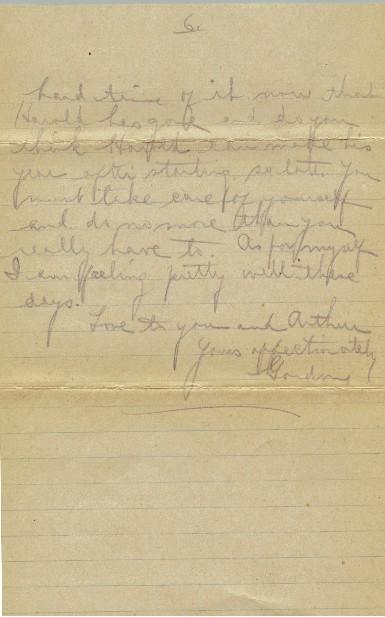 6.
hard time of it now that
Harold has gone and do you
think Harold can make his
year after starting so late. You
must take care of yourself
and do no more than you
really have to. As for myself
I am feeling pretty well these
days.
Love to you and Arthur
Yours affectionately
Gordon